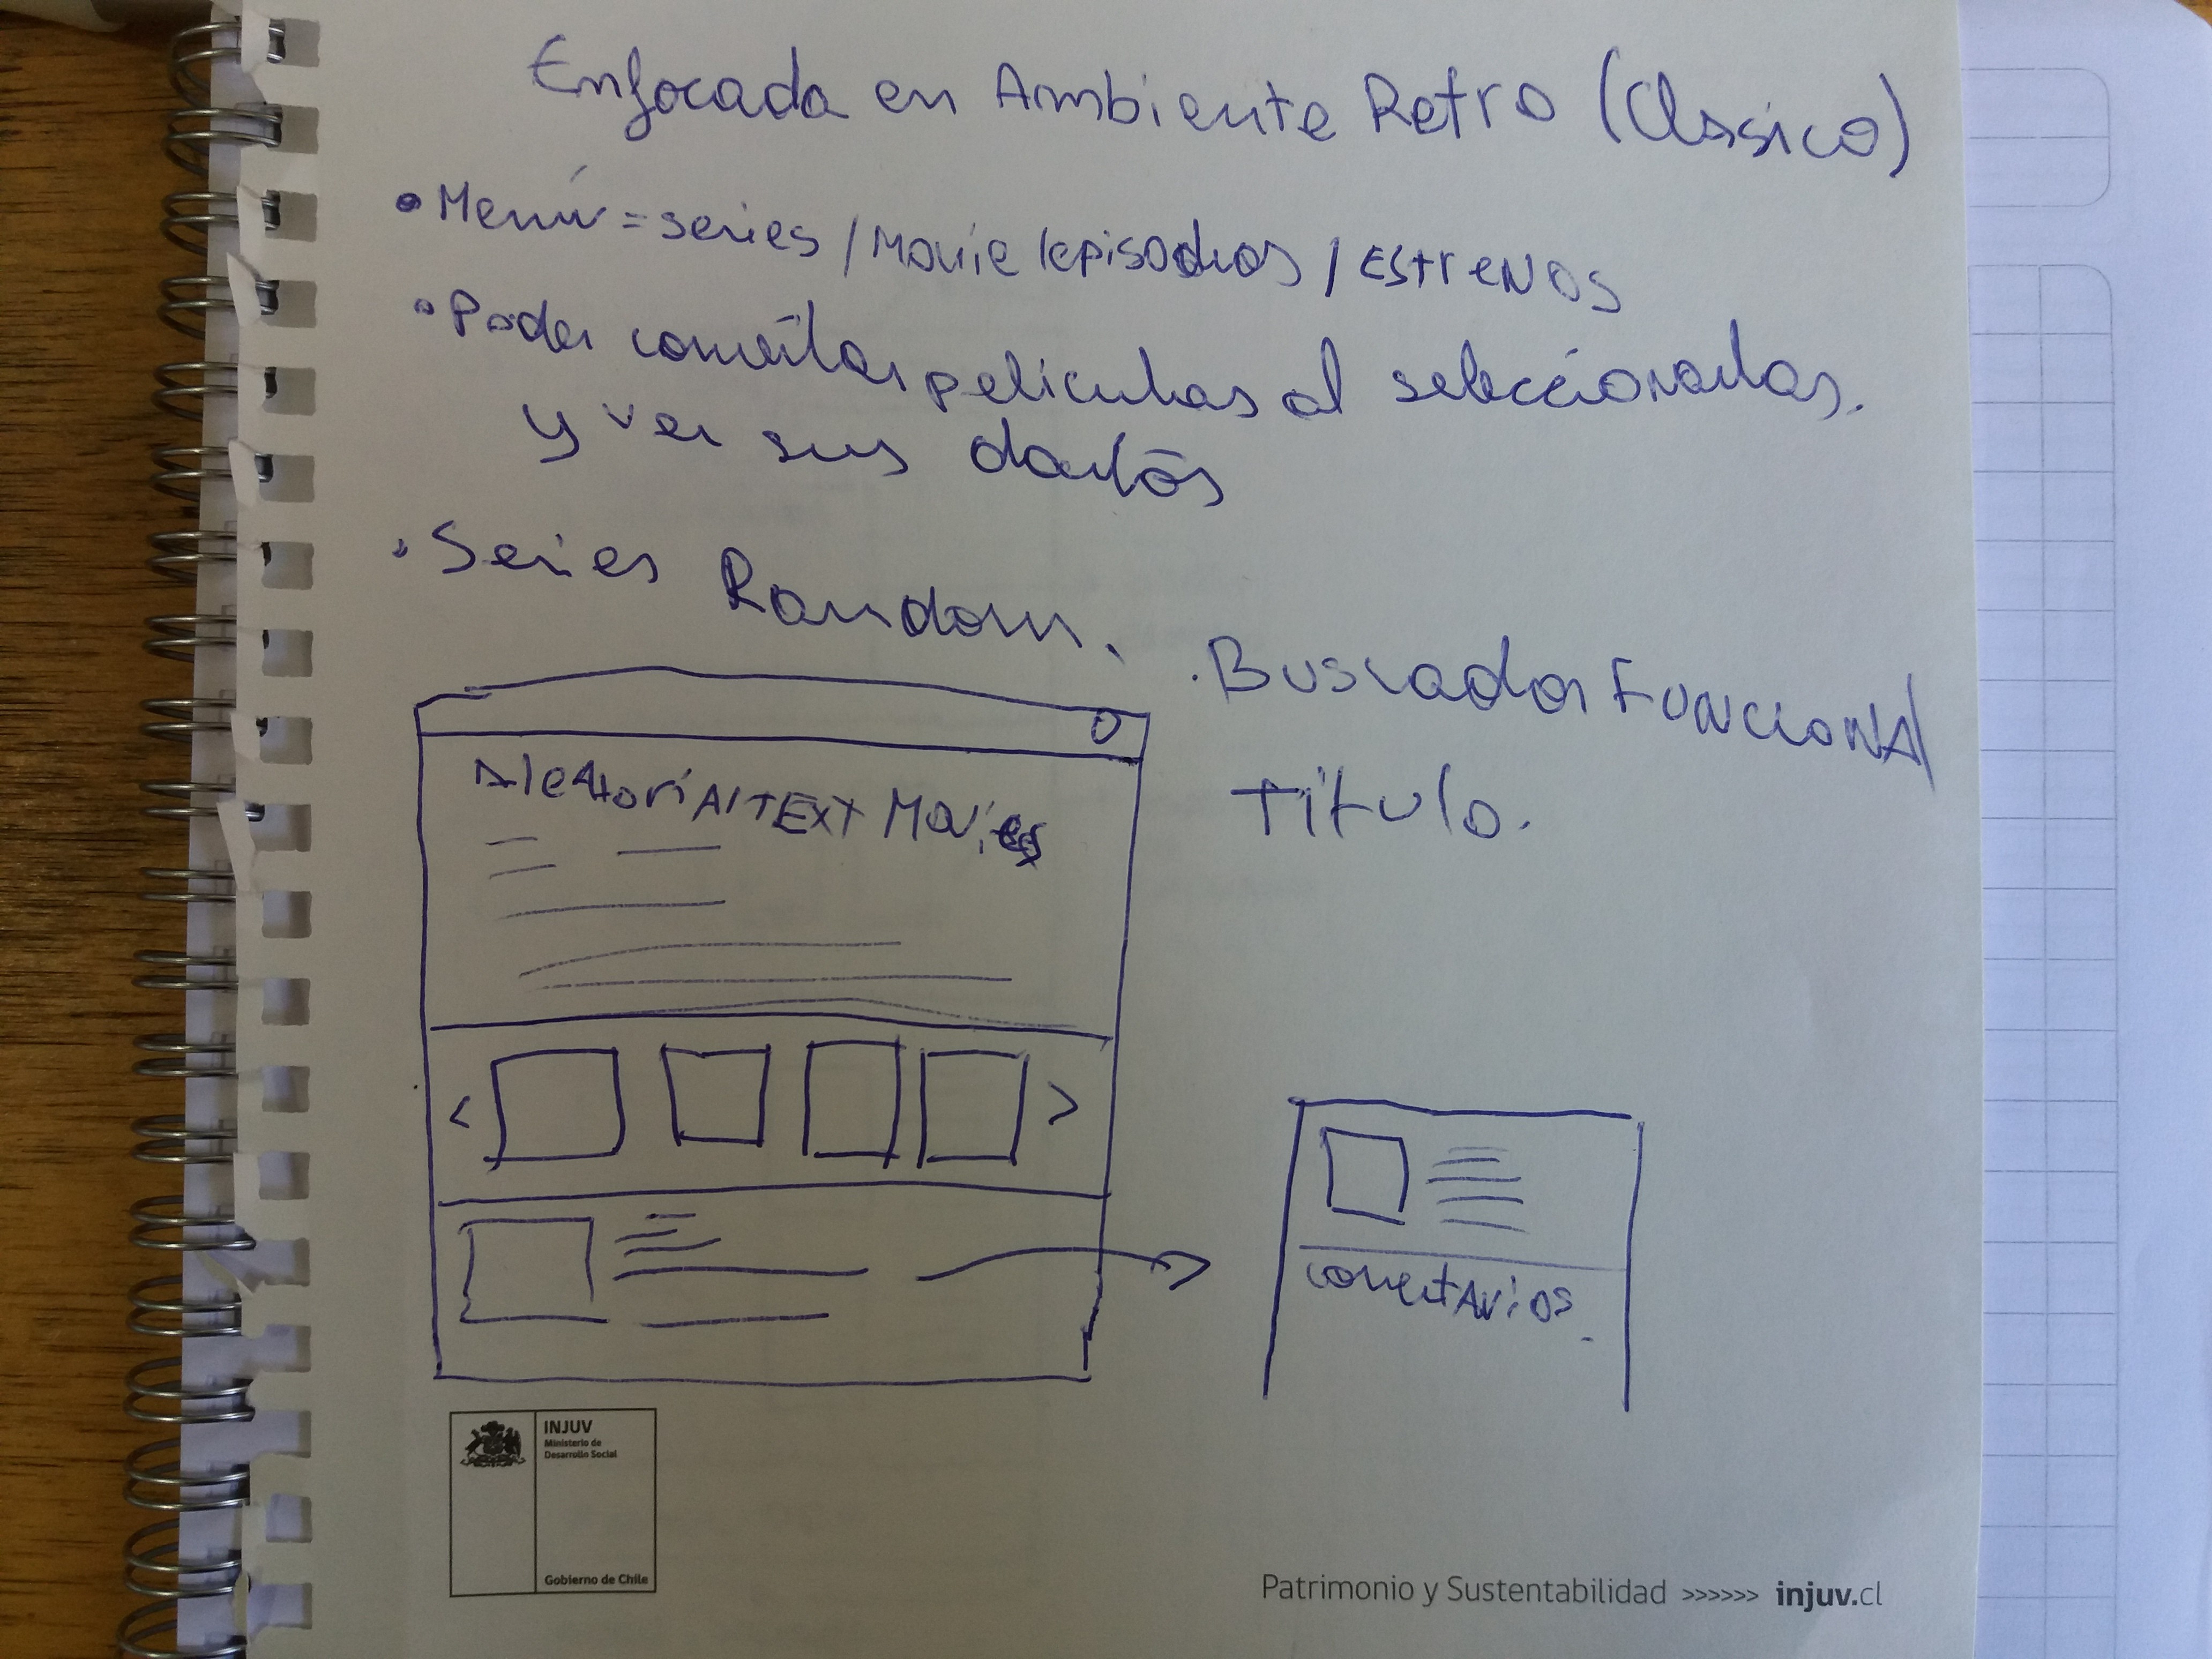 Enfocada en Ambiente Retro (Classico)
• Menú = series / Movie / episodios / EstreNos
• Poder comentar peliculas al seleccionarlas.
y ver sus datos
• Series Random.
. Buscador FUNCIONAl
Titulo.
AleAtoriAl TEXT Movies
< >
comentArios.
INJUV
Ministerio de
Desarrollo Social
Gobierno de Chile
Patrimonio y Sustentabilidad >>>>>> injuv.cl